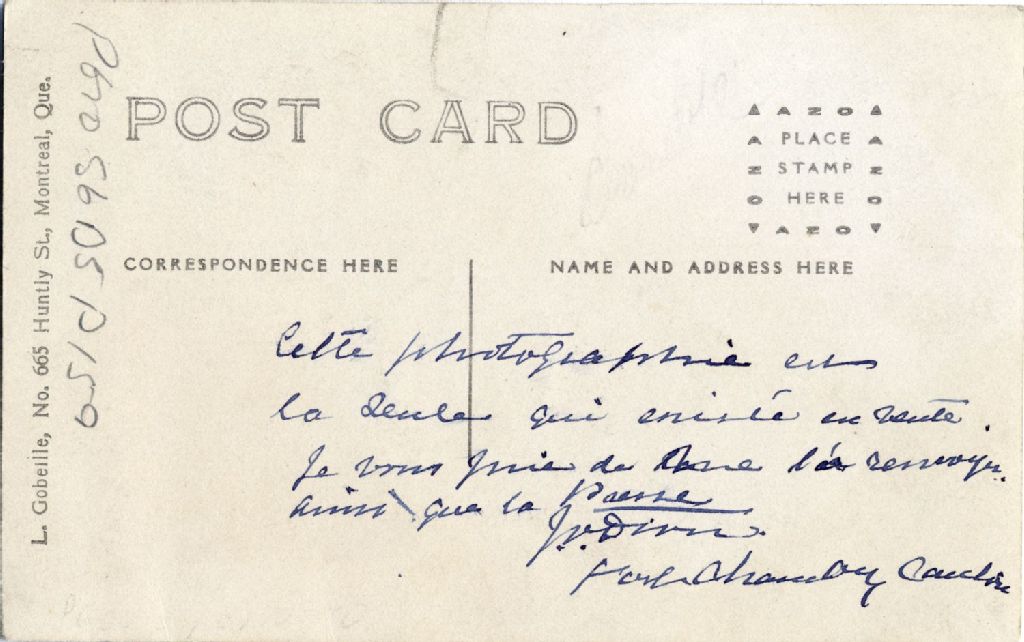 POST CARD
AZO
PLACE
STAMP
HERE
AZO
CORRESPONDENCE HERE
NAME AND ADDRESS HERE
Cette photographie est
la seule qui existe en vente.
Je vous prie de la renvoyer
ainsi que la
J. O. Dion
Fort Chambly Canton
L. Gobeille, No. 665 Huntly St., Montreal, Que.